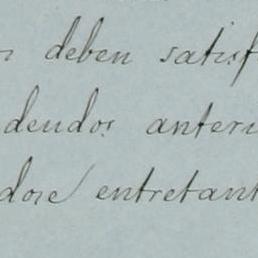 deben satisf
dendos anteri
dose entretant